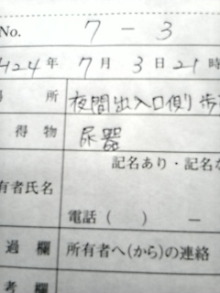 No. 7-3
424年 7月 3日 21時
所 夜間出入口側 歩
得物 尿器
記名あり・記名な
有者氏名
電話( ) -
過欄 所有者へ(から)の連絡
考欄